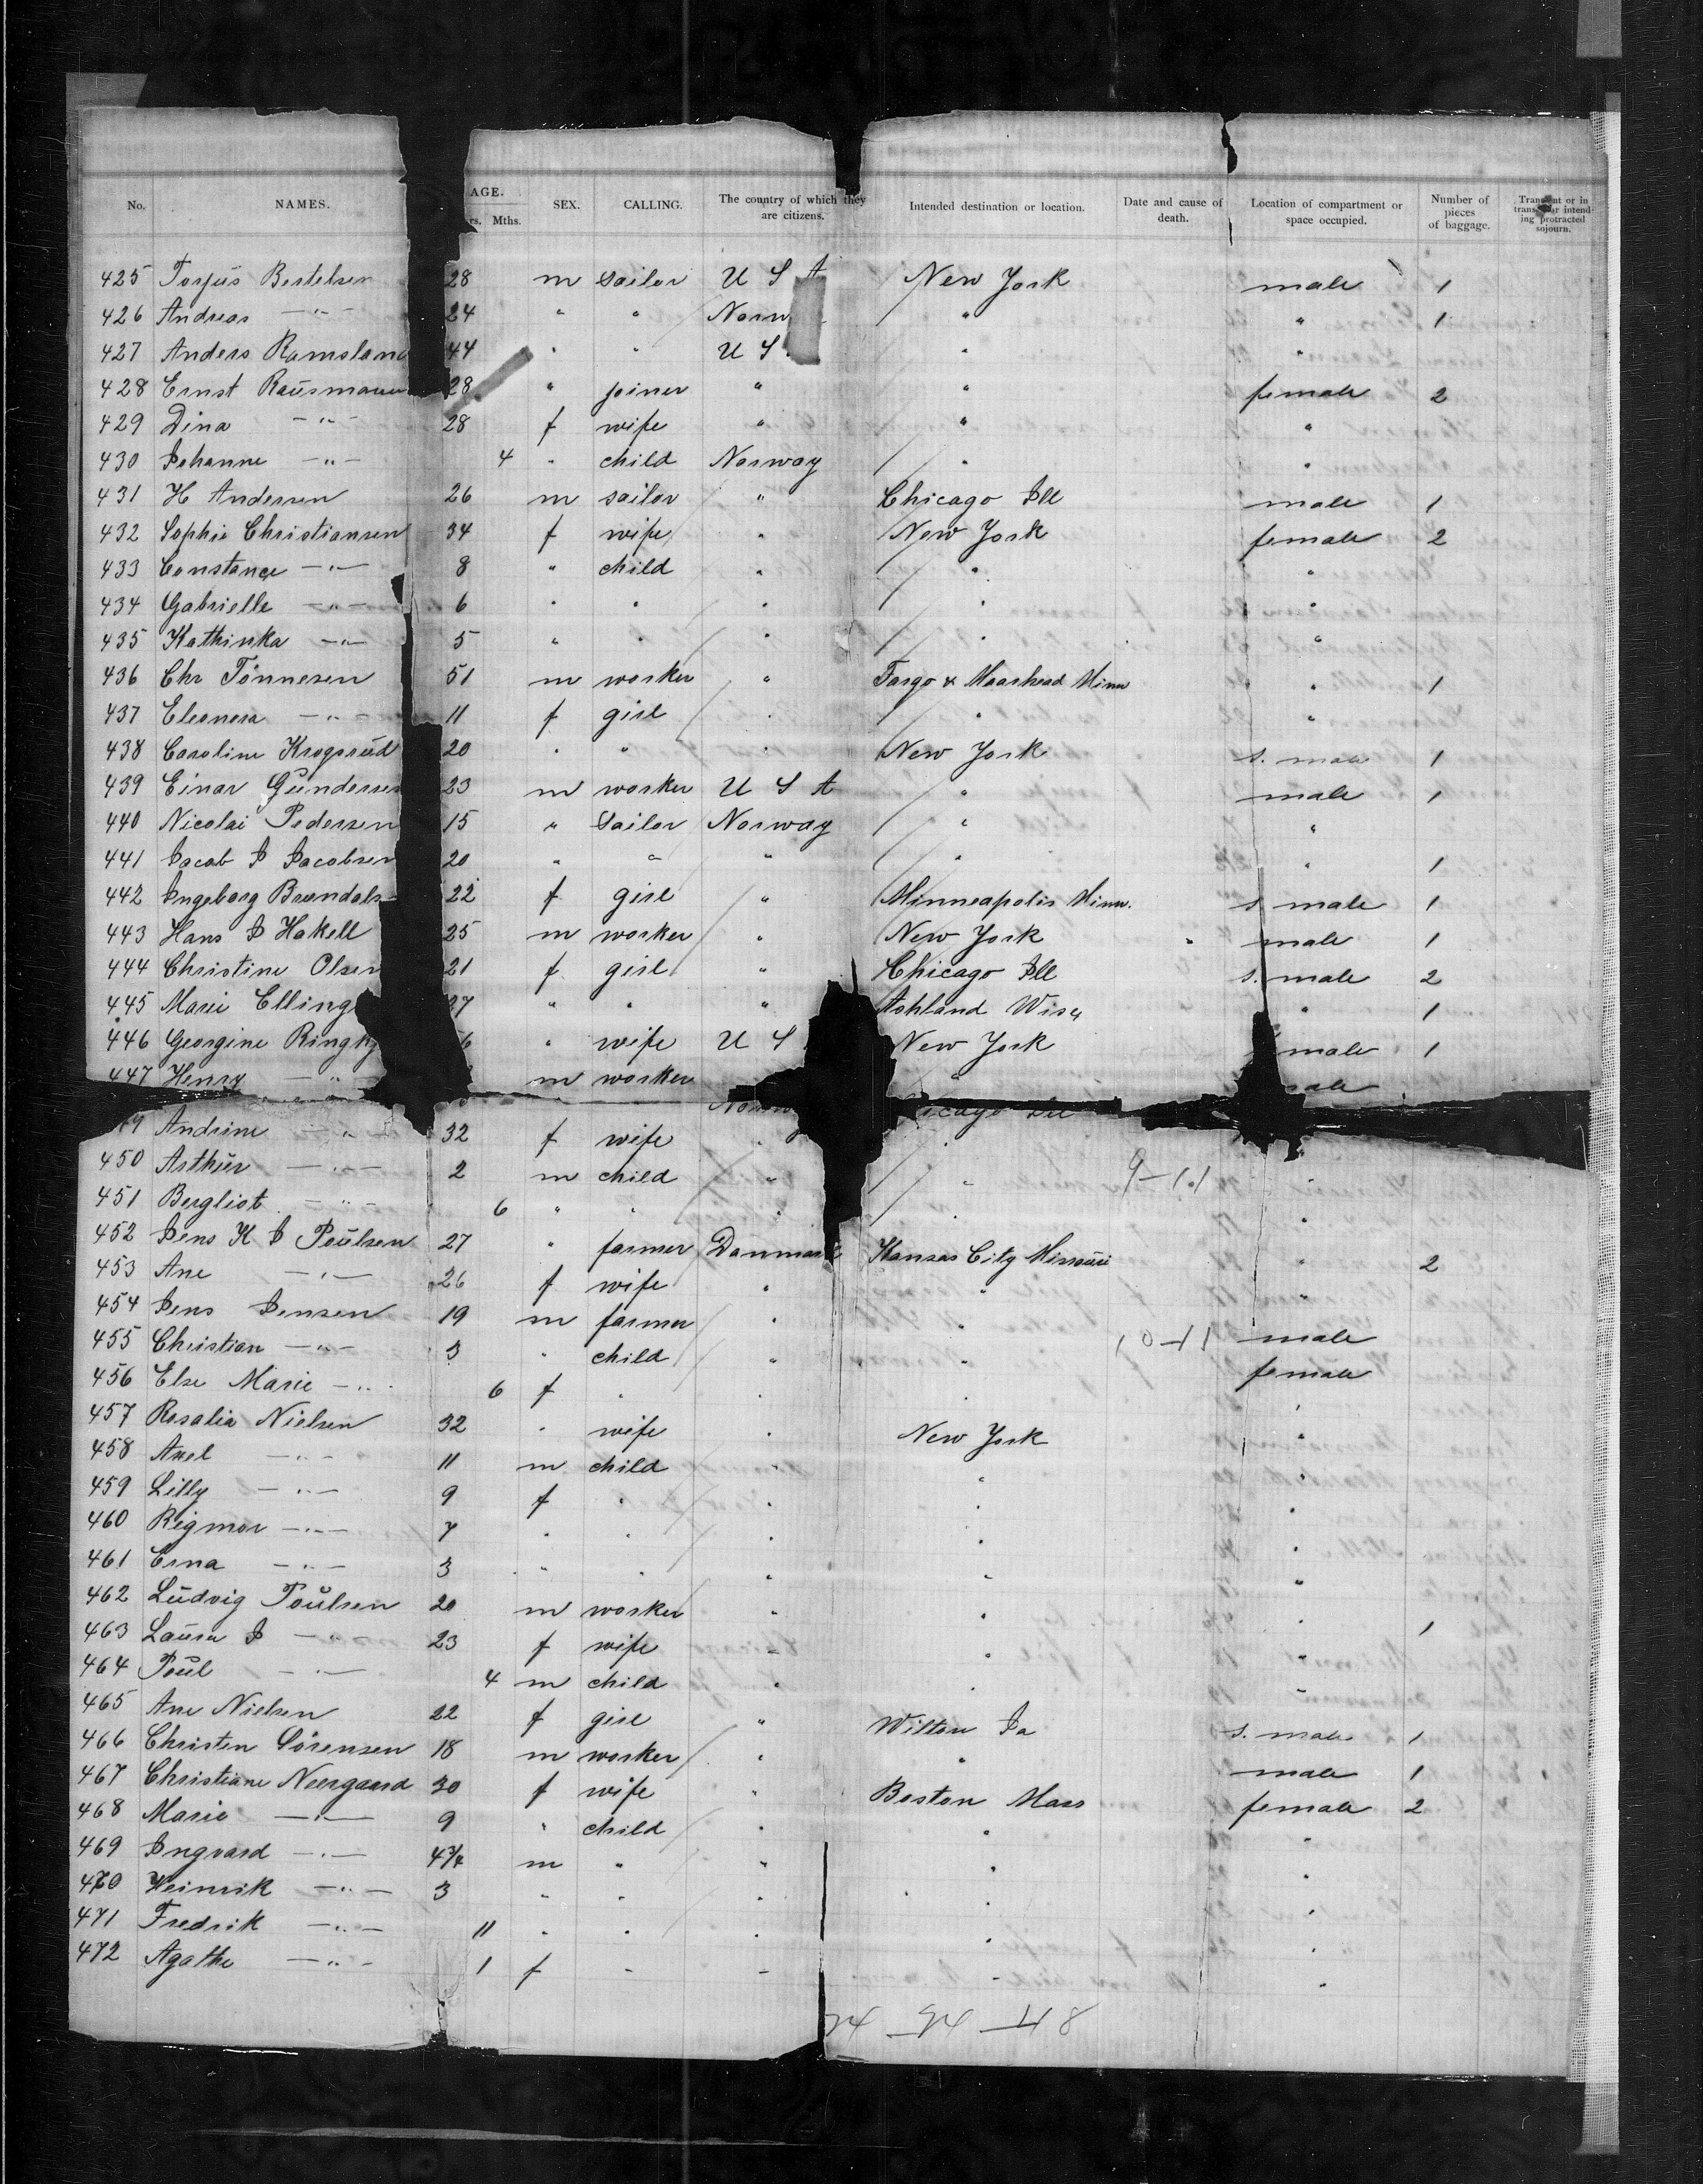 No. NAMES. AGE. rs. Mths. SEX. CALLING. The country of which they are citizens. Intended destination or location. Date and cause of death. Location of compartment or space occupied. Number of pieces of baggage. Transient or in transit or intending protracted sojourn.
425 Torjus Bertelsen 28 m sailor U S A New York male 1
426 Andreas —"— 24 " " Norw " " 1
427 Anders Ramsland 44 " " U S " "
428 Ernst Rausmann 28 " joiner " " female 2
429 Dina —"— 28 f wife " " "
430 Johanne —"— 4 " child Norway " "
431 H Andersen 26 m sailor " Chicago Ill male 1
432 Sophie Christiansen 34 f wife " New York female 2
433 Constance —"— 8 " child " " "
434 Gabrielle —"— 6 " " " " "
435 Kathinka —"— 5 " " " " "
436 Chr Tönnesen 51 m worker " Fargo & Moorhead Minn " 1
437 Eleonora —"— 11 f girl " " "
438 Caroline Krogsrud 20 " " " New York s. male 1
439 Einar Gundersen 23 m worker U S A " male 1
440 Nicolai Pedersen 15 " Sailor Norway " "
441 Jacob J Jacobsen 20 " " " " " 1
442 Ingeborg Brondals 22 f girl " Minneapolis Minn. s male 1
443 Hans J Hakell 25 m worker " New York male 1
444 Christine Olsen 21 f girl " Chicago Ill s. male 2
445 Marie Elling 27 " " " Ashland Wis " 1
446 Georgine Ringk 6 " wife U S New York male 1
447 Henry —"— m worker " male
Norw icago Ill
9 Andrine —"— 32 f wife " "
450 Arthur —"— 2 m child " " 9-11 "
451 Bergliot —"— 6 " " " " "
452 Jens K J Poulsen 27 " farmer Danmark Kansas City Missouri " 2
453 Ane —"— 26 f wife " " "
454 Jens Jensen 19 m farmer " " male
455 Christian —"— 3 " child " " 10-11 female
456 Else Marie —"— 6 f " " " "
457 Rosalia Nielsen 32 " wife " New York "
458 Axel —"— 11 m child " " "
459 Lilly —"— 9 f " " " "
460 Rigmor —"— 7 " " " " "
461 Erna —"— 3 " " " " "
462 Ludvig Poulsen 20 m worker " " " 1
463 Laura J —"— 23 f wife " " "
464 Poul —"— 4 m child " " "
465 Ane Nielsen 22 f girl " Wilton Ia s. male 1
466 Christen Sörensen 18 m worker " " male 1
467 Christiane Neergaard 30 f wife " Boston Mass female 2
468 Marie —"— 9 " child " " "
469 Ingvard —"— 4 3/4 m " " " "
470 Heinrik —"— 3 " " " " "
471 Fredrik —"— 11 " " " " "
472 Agathe —"— 1 f " " " "